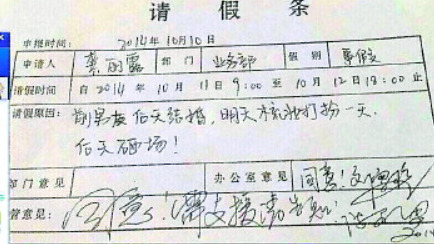 请假条
申报时间： 2014年10月10日
申请人 龚丽露 部门 业务部 假别 事假
请假时间： 自 2014 年 10 月 11 日 9:00 至 10 月 12 日 18:00 止
请假原因： 前男友后天结婚，明天梳妆打扮一天，
后天砸场！
部门意见 办公室意见 同意！
管意见： 同意！需支援请告知！